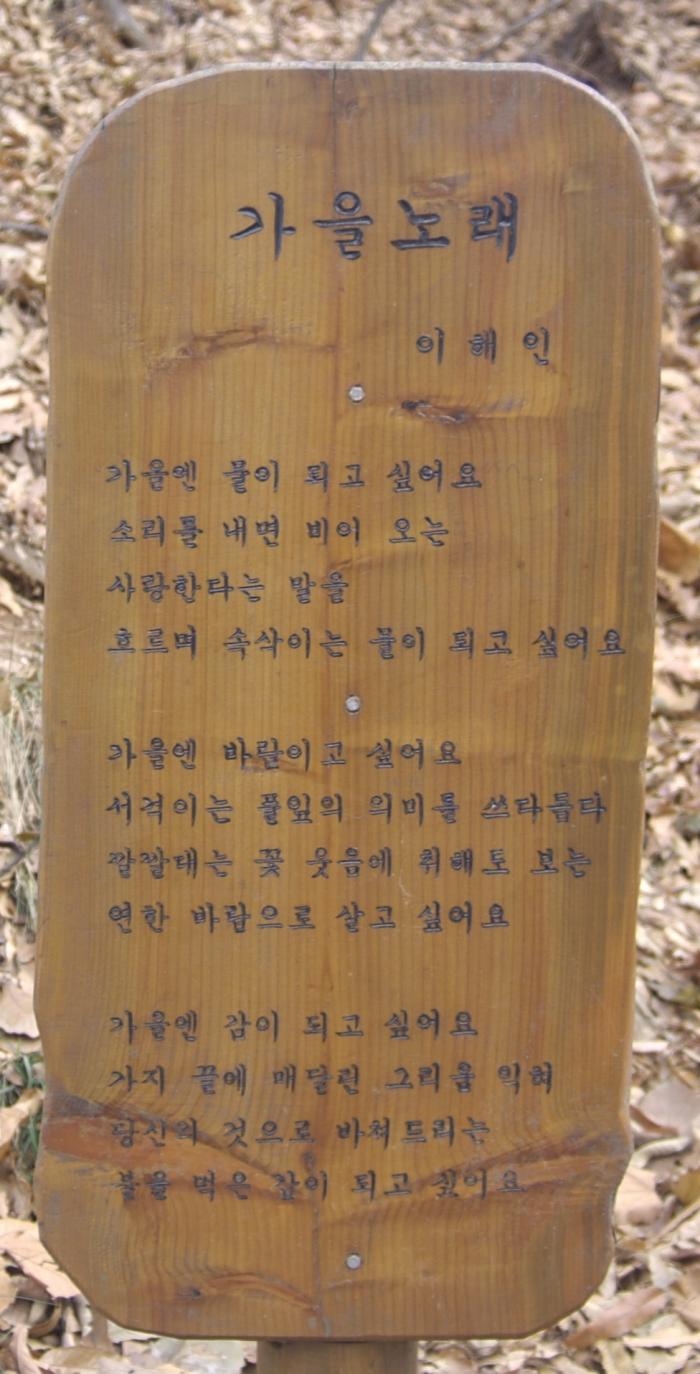 가을노래
이해인
가을엔 물이 되고 싶어요
소리를 내면 비어 오는
사랑한다는 말을
흐르며 속삭이는 물이 되고 싶어요
가을엔 바람이고 싶어요
서걱이는 풀잎의 의미를 쓰다듬다
깔깔대는 꽃 웃음에 취해도 보는
연한 바람으로 살고 싶어요
가을엔 감이 되고 싶어요
가지 끝에 매달린 그리움 익혀
당신의 것으로 바쳐드리는
불을 먹은 감이 되고 싶어요